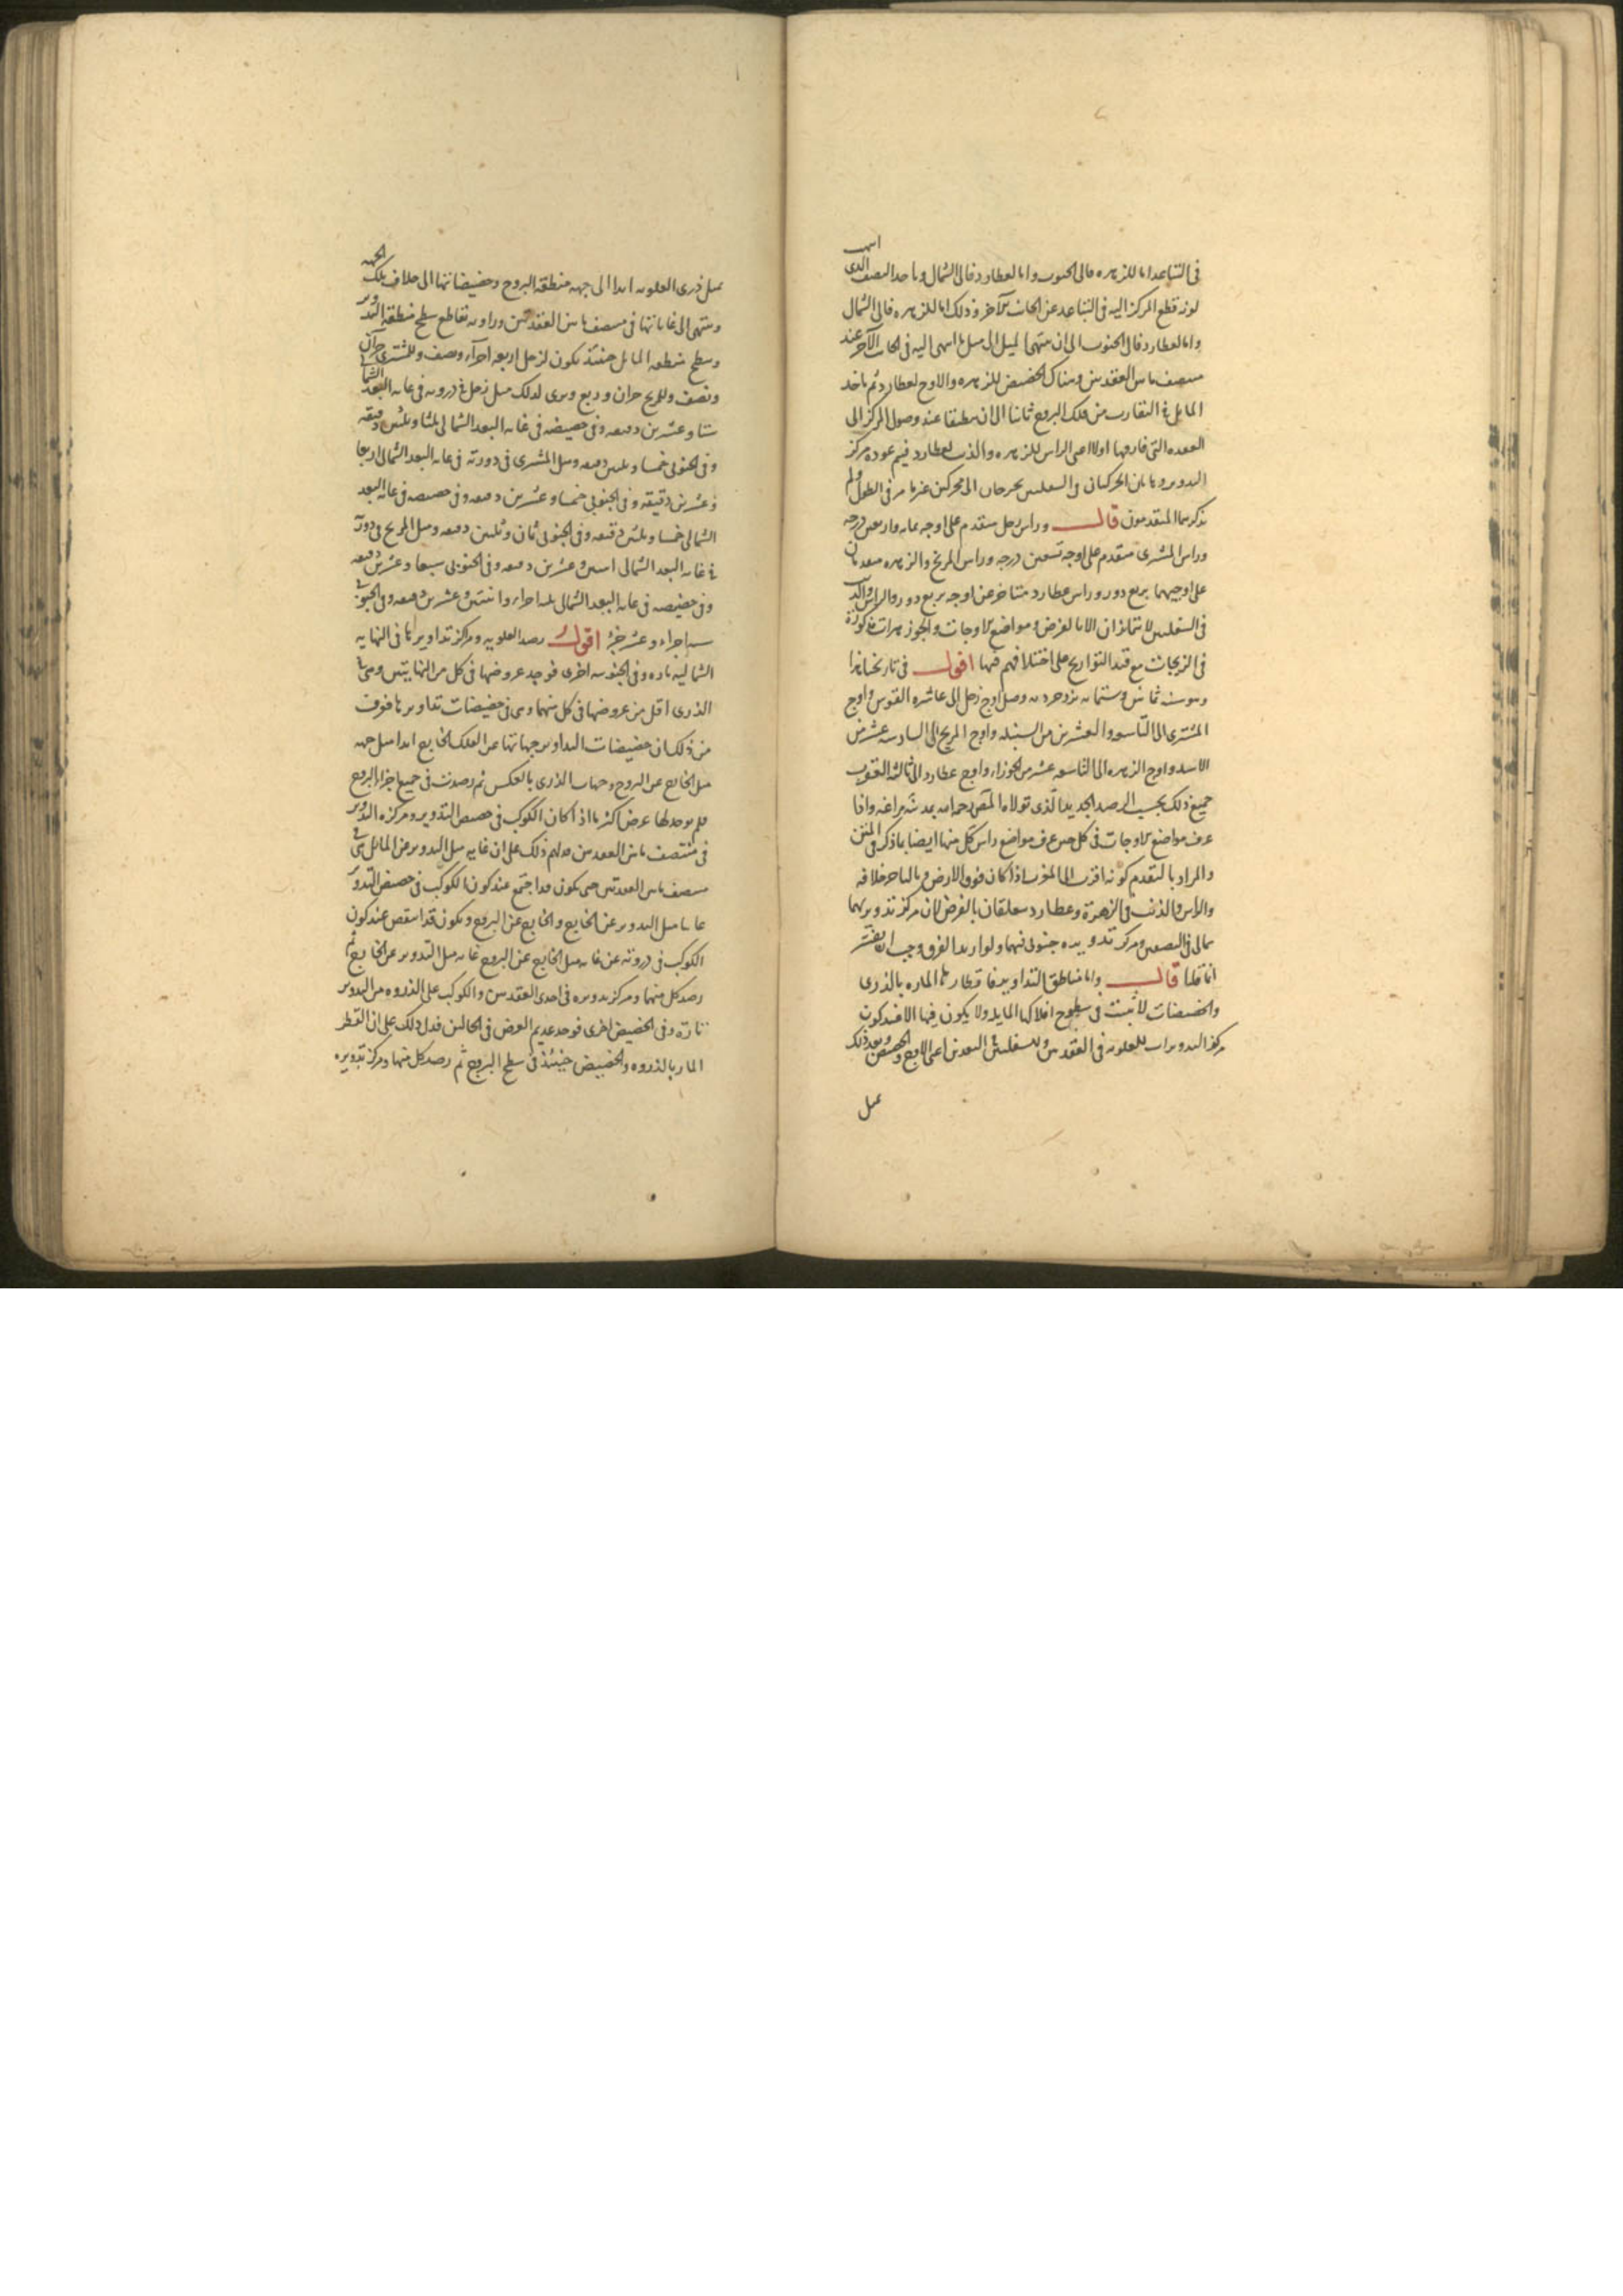 في التباعد اما للزهره فالى الجنوب واما لعطارد فالى الشمال وياخد النصف الدى اسهى
لوز قطع المركز اليه في التباعد عن الجانب الآخر و ذلك اما للزهره فالى الشمال
واما لعطارد فالى الجنوب الى ان ينتهى الميل الى مثل ما اسهى اليه في الجانب الآخر عند
منتصف ما بين العقدتين وهناك الحضيض للزهره والاوج لعطارد ثم ياخد
المايل في التقارب من فلك البروج ثانيا الى ان ينطبقا عند وصول المركز الى
العقده التى فارقها اولا اعنى الراس للزهره والذنب لعطارد فيتم عوده مركز
التدوير وهاتان الحركتان في السفليين يحوجان الى محركين غير ما مر في الطول ولم
يذكرهما المتقدمون قال وراس زحل متقدم على اوجه بمايه واربعين درجه
وراس المشترى متقدم على اوجه بسبعين درجه وراس المريخ والزهره متقدمان
على اوجيهما بربع دور وراس عطارد متاخر عن اوجه بربع دور والراس والذنب
في السفليين لا يتمايزان الا بالفرض ومواضع الاوجات والجوزهرات مذكورة
في الزيجات مع قيد التواريخ على اختلافهم فيها اقول في تاريخنا هذا
وهو سنه ثمانين وستمايه يزدجرديه وصل اوج زحل الى عاشره القوس واوج
المشترى الى التاسعه والعشرين من السنبله واوج المريخ الى السادسه عشر من
الاسد واوج الزهره الى التاسعه عشر من الجوزاء واوج عطارد الى ثالثة العقرب
جميع ذلك بحسب الرصد الجديد الذى تولاه المص رحمه الله بمدينة مراغه واذا
عرف مواضع الاوجات في كل حين عرف مواضع راس كل منها ايضا بما ذكر في المتن
والمراد بالتقدم كونه اقرب الى المغرب اذا كان فوق الارض وبالتاخر خلافه
والراس والذنب في الزهرة وعطارد متعلقان بالفرض لان مركز تدويرهما
شمالى في النصفين ومركز تدويره جنوبى فيهما ولو اريد الفرق وجب ان يفسر
انا قلنا قال واما مناطق التداوير فاقطارها الماره بالذرى
والحضيضات لا تثبت في سطوح افلاكها المايله ولا يكون فيها الا عند كون
مركز التدويرات للعلويه في العقدتين وللسفليين في البعدين اعنى الاوج والحضيض وبعد ذلك
يميل
يميل ذرى العلويه ابدا الى جهه منطقة البروج وحضيضاتها الى خلاف تلك الجهه
وينتهى الى غاياتها في منتصف ما بين العقدتين وزاويه تقاطع سطح منطقة التدوير
وسطح منطقه المائل حينئذ يكون لزحل اربعه اجزاء ونصف وللمشترى جزآن
ونصف وللمريخ جزان وربع ويرى لذلك ميل زحل في ذروته في غايه البعد الشمالى
ستا وعشرين دقيقه وفي حضيضه في غايه البعد الشمالى ثلثا وثلثين دقيقه
وفي الجنوبى خمسا وثلثين دقيقه وميل المشترى في ذروته في غايه البعد الشمالى اربعا
وعشرين دقيقه وفي الجنوبى خمسا وعشرين دقيقه وفي حضيضه في غايه البعد
الشمالى خمسا وثلثين دقيقه وفي الجنوبى ثمان وثلثين دقيقه وميل المريخ في ذروته
في غايه البعد الشمالى اثنتين وعشرين دقيقه وفي الجنوبى سبعا وعشرين دقيقه
وفي حضيضه في غايه البعد الشمالى ثلثه اجزاء واثنتين وعشرين دقيقه وفي الجنوبى
سته اجزاء وعشر جزء اقول رصد العلويه ومركز تداويرها في النهايه
الشماليه تاره وفي الجنوبيه اخرى فوجد عروضها في كل من النهايتين وهى في
الذرى اقل من عروضها في كل منهما وهى في حضيضات تداويرها فعرف
من ذلك ان حضيضات التداوير جهاتها عن الفلك الخارج ابدا ميل جهه
ميل الخارج عن البروج وجهات الذرى بالعكس ثم رصدت في جميع اجزاء البروج
فلم يوجد لها عرض اكثر مما اذا كان الكوكب في حضيض التدوير ومركز التدوير
في منتصف ما بين العقدتين فدلهم ذلك على ان غايه ميل التدوير عن المائل في
منتصف ما بين العقدتين حتى يكون قد اجتمع عند كون الكوكب في حضيض التدوير
غايتا ميل التدوير عن الخارج والخارج عن البروج ويكون قد انتقص عند كون
الكوكب في ذروته عن غايه ميل الخارج عن البروج غايه ميل التدوير عن الخارج ثم
رصد كل منهما ومركز تدويره في احدى العقدتين والكوكب على الذروه من التدوير
تارة وفي الحضيض اخرى فوجد عديم العرض في الحالين فدل ذلك على ان القطر
المار بالذروه والحضيض حينئذ في سطح البروج ثم رصد كل منها ومركز تدويره